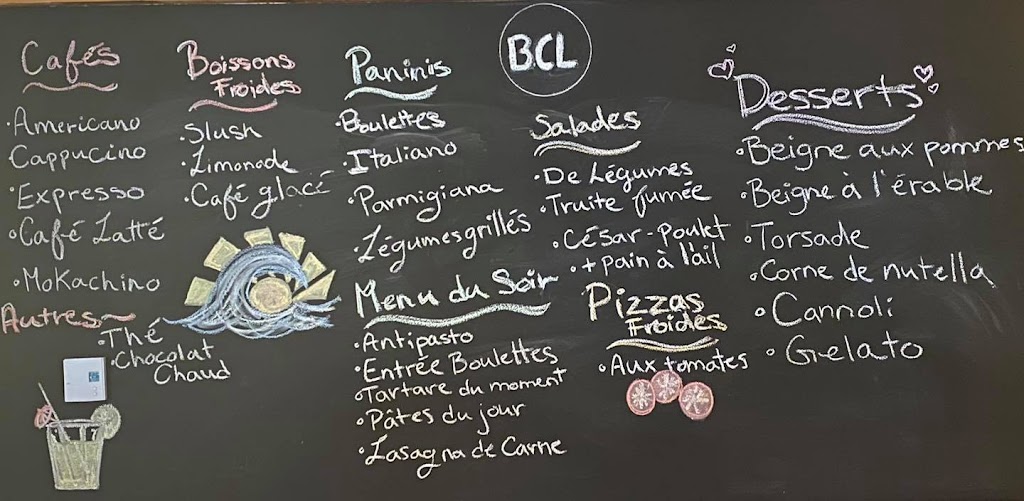 Cafés
·Americano
Cappucino
·Expresso
·Café Latté
·Mokachino
Autres~
·Thé
·Chocolat
Chaud
Boissons
Froides
·Slush
·Limonade
·Café glacé
Paninis
·Boulettes
·Italiano
·Parmigiana
·Légumes grillés
Menu du Soir
·Antipasto
·Entrée Boulettes
·Tartare du moment
·Pâtes du jour
·Lasagna de Carne
BCL
Salades
·De Légumes
·Truite fumée
·César-Poulet
·+ pain à l'ail
Pizzas
Froides
·Aux tomates
Desserts
·Beigne aux pommes
·Beigne à l'érable
·Torsade
·Corne de nutella
·Cannoli
·Gelato